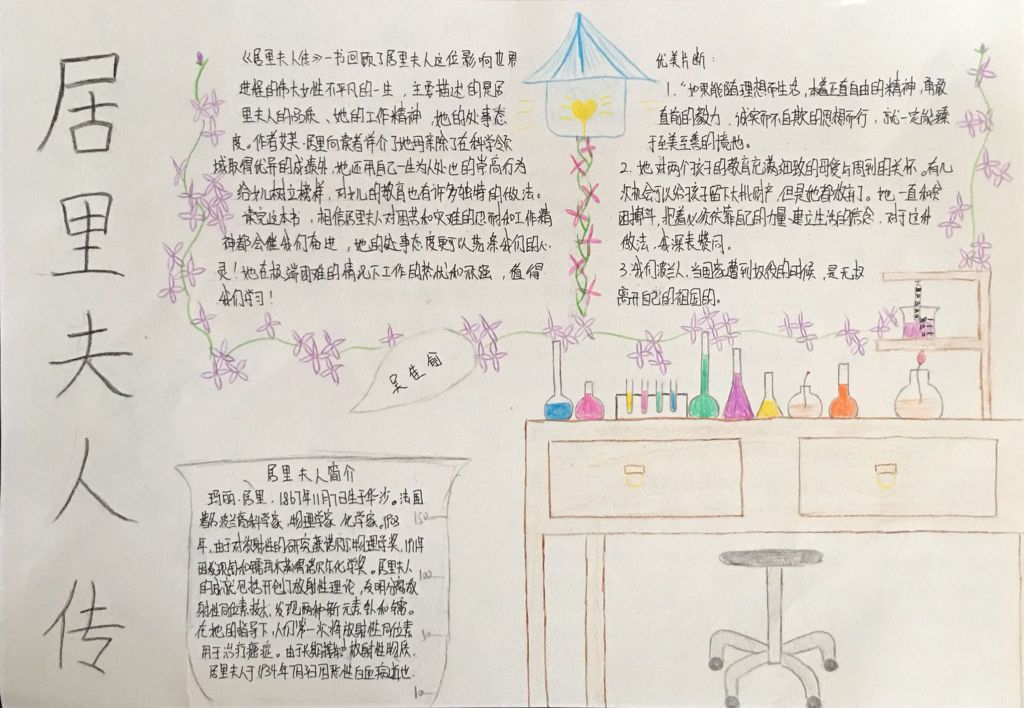 居里夫人传
《居里夫人传》一书回顾了居里夫人这位影响世界
进程的伟大女性不平凡的一生，主要描述的是居
里夫人的品质、她的工作精神，她的处事态
度。作者艾芙·居里向读者介了她母亲除了在科学领
域取得优异的成绩外，她还用自己一生为人处世的崇高行为
给儿树立榜样，对儿的教育也有许多独特的做法。
读完这本书，相信居里夫人对困苦和灾难的忍耐和工作精
神都会催我们奋进，她的处事态度更可以荡涤我们的心
灵！她在极端困难的情况下工作的热忱和顽强，值得
我们学习！
优美片断：
1."如果能随理想而生活，本着正直自由的精神，勇敢
直前的毅力，诚实而不自欺的思想而行，就一定能臻
于至美至善的境地。
2.她对两个孩子的教育充满细致的母爱与周到的关怀。有几
次机会可以给孩子留下大批财产，但是她都放弃了。她一直和贫
困搏斗，抱着必须依靠自己的力量建立生活的信念，对于这种
做法，我深表赞同。
3.我们波兰人，当国家遭到奴役的时候，是无权
离开自己的祖国的。
吴佳
居里夫人简介
玛丽·居里，1867年11月7日生于华沙。法国
著名波兰裔科学家、物理学家、化学家。1903
年，由于对放射性的研究获诺贝尔物理学奖，1911年
因发现钋和镭再次获得诺贝尔化学奖。居里夫人
的成就包括开创了放射性理论，发明分离放
射性同位素技术，发现两种新元素钋和镭。
在她的指导下，人们第一次将放射性同位素
用于治疗癌症。由于长期接触放射性物质，
居里夫人于1934年7月3日因恶性白血病逝世
150
100
50
10